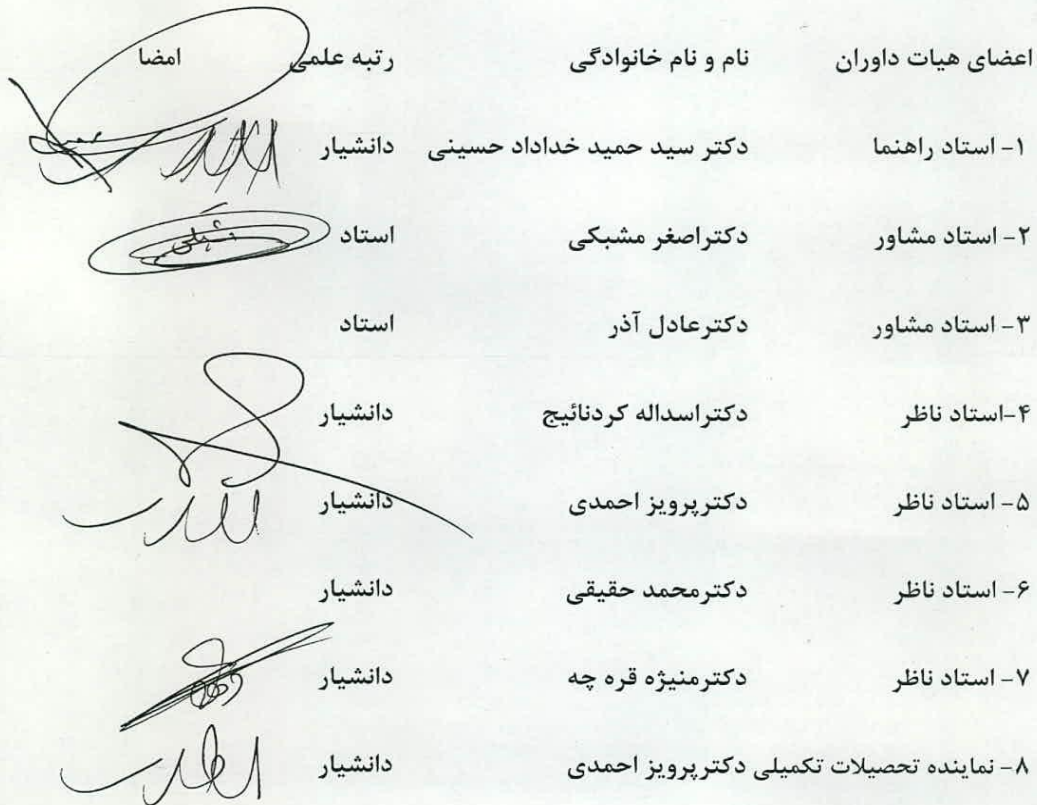 اعضای هیات داوران نام و نام خانوادگی رتبه علمی امضا
۱- استاد راهنما دکتر سید حمید خداداد حسینی دانشیار
۲- استاد مشاور دکتراصغر مشبکی استاد
۳- استاد مشاور دکترعادل آذر استاد
۴-استاد ناظر دکتراسداله کردنائیج دانشیار
۵- استاد ناظر دکترپرویز احمدی دانشیار
۶- استاد ناظر دکترمحمد حقیقی دانشیار
۷- استاد ناظر دکترمنیژه قره چه دانشیار
۸- نماینده تحصیلات تکمیلی دکترپرویز احمدی دانشیار